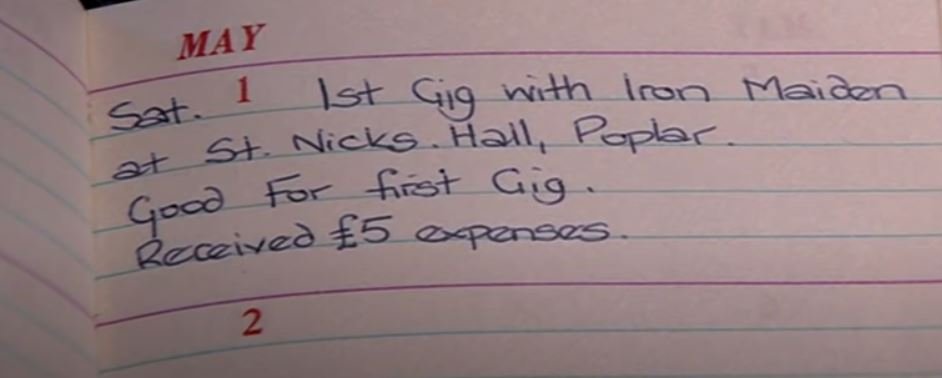 MAY
Sat. 1 1st Gig with Iron Maiden
at St. Nicks. Hall, Poplar.
Good For first Gig.
Received £5 expenses.
2